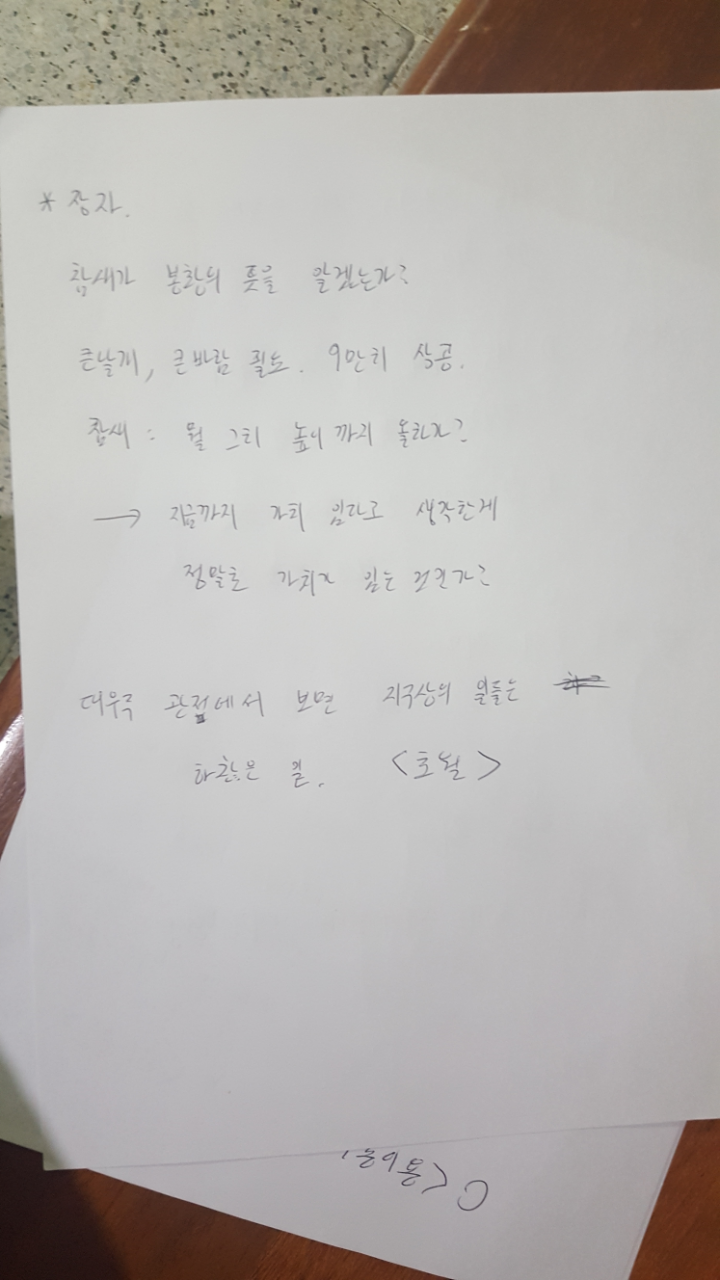 * 장자.
참새가 봉황의 뜻을 알겠는가?
큰날개, 큰바람 필요. 9만리 상공.
참새 : 뭘 그리 높이 까지 올라가?
→ 지금까지 가치 있다고 생각한게
정말로 가치가 있는 것인가?
대우주 관점에서 보면 지구상의 일들은
하찮은 일. <초월>